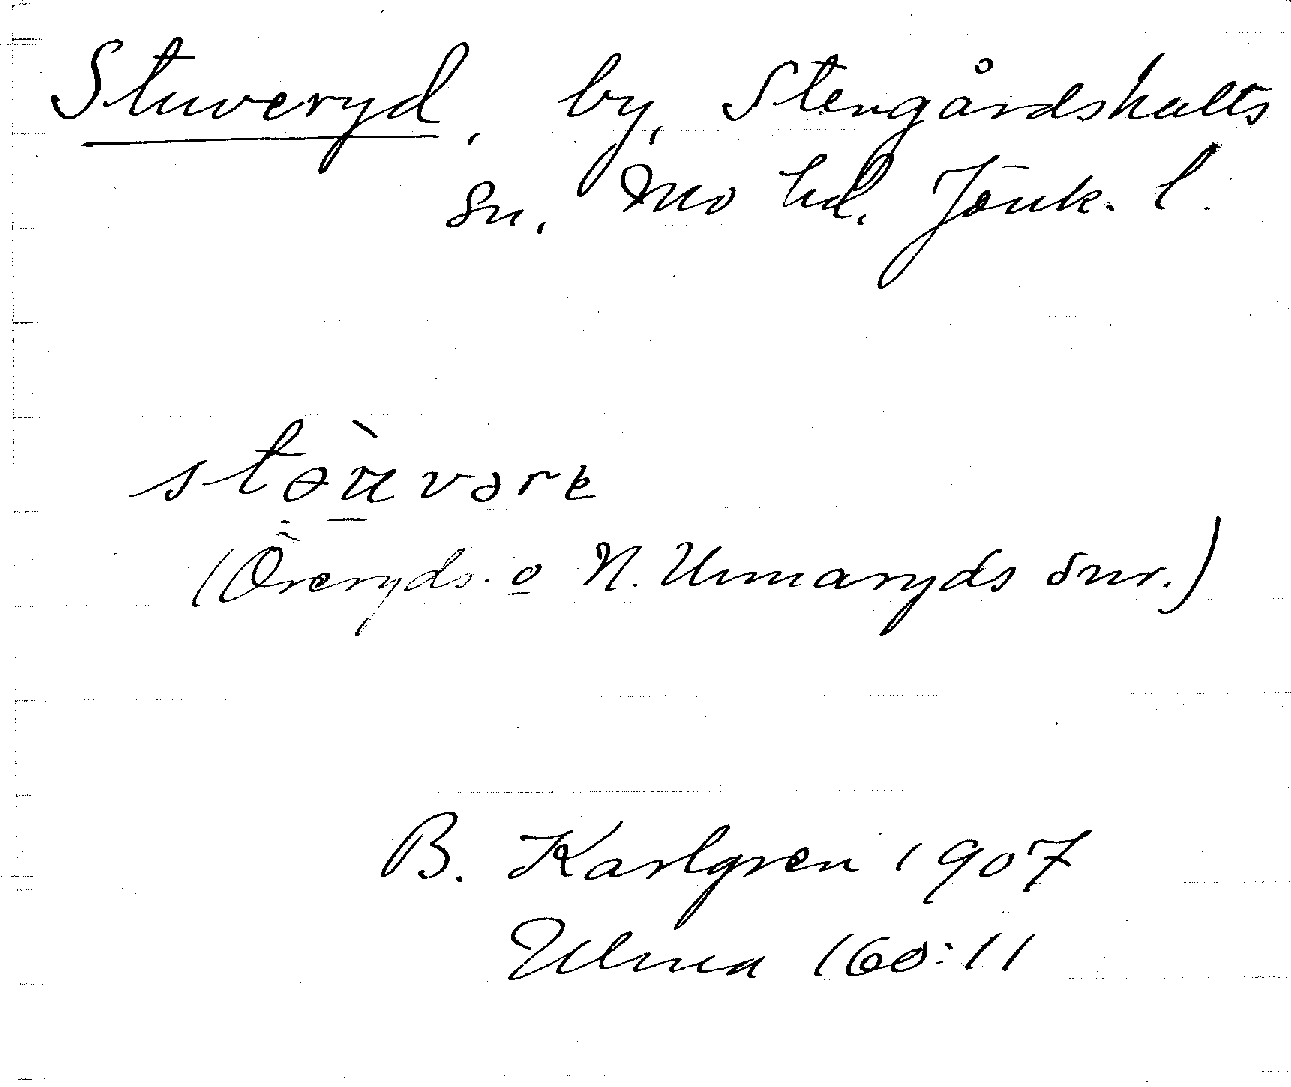 Stuveryd, by, Stengårdshults
sn, Mo hd. Jönk. l.
(Öreryds. o N. Unnaryds snr.)
B. Karlgren 1907
Ulma 160:11